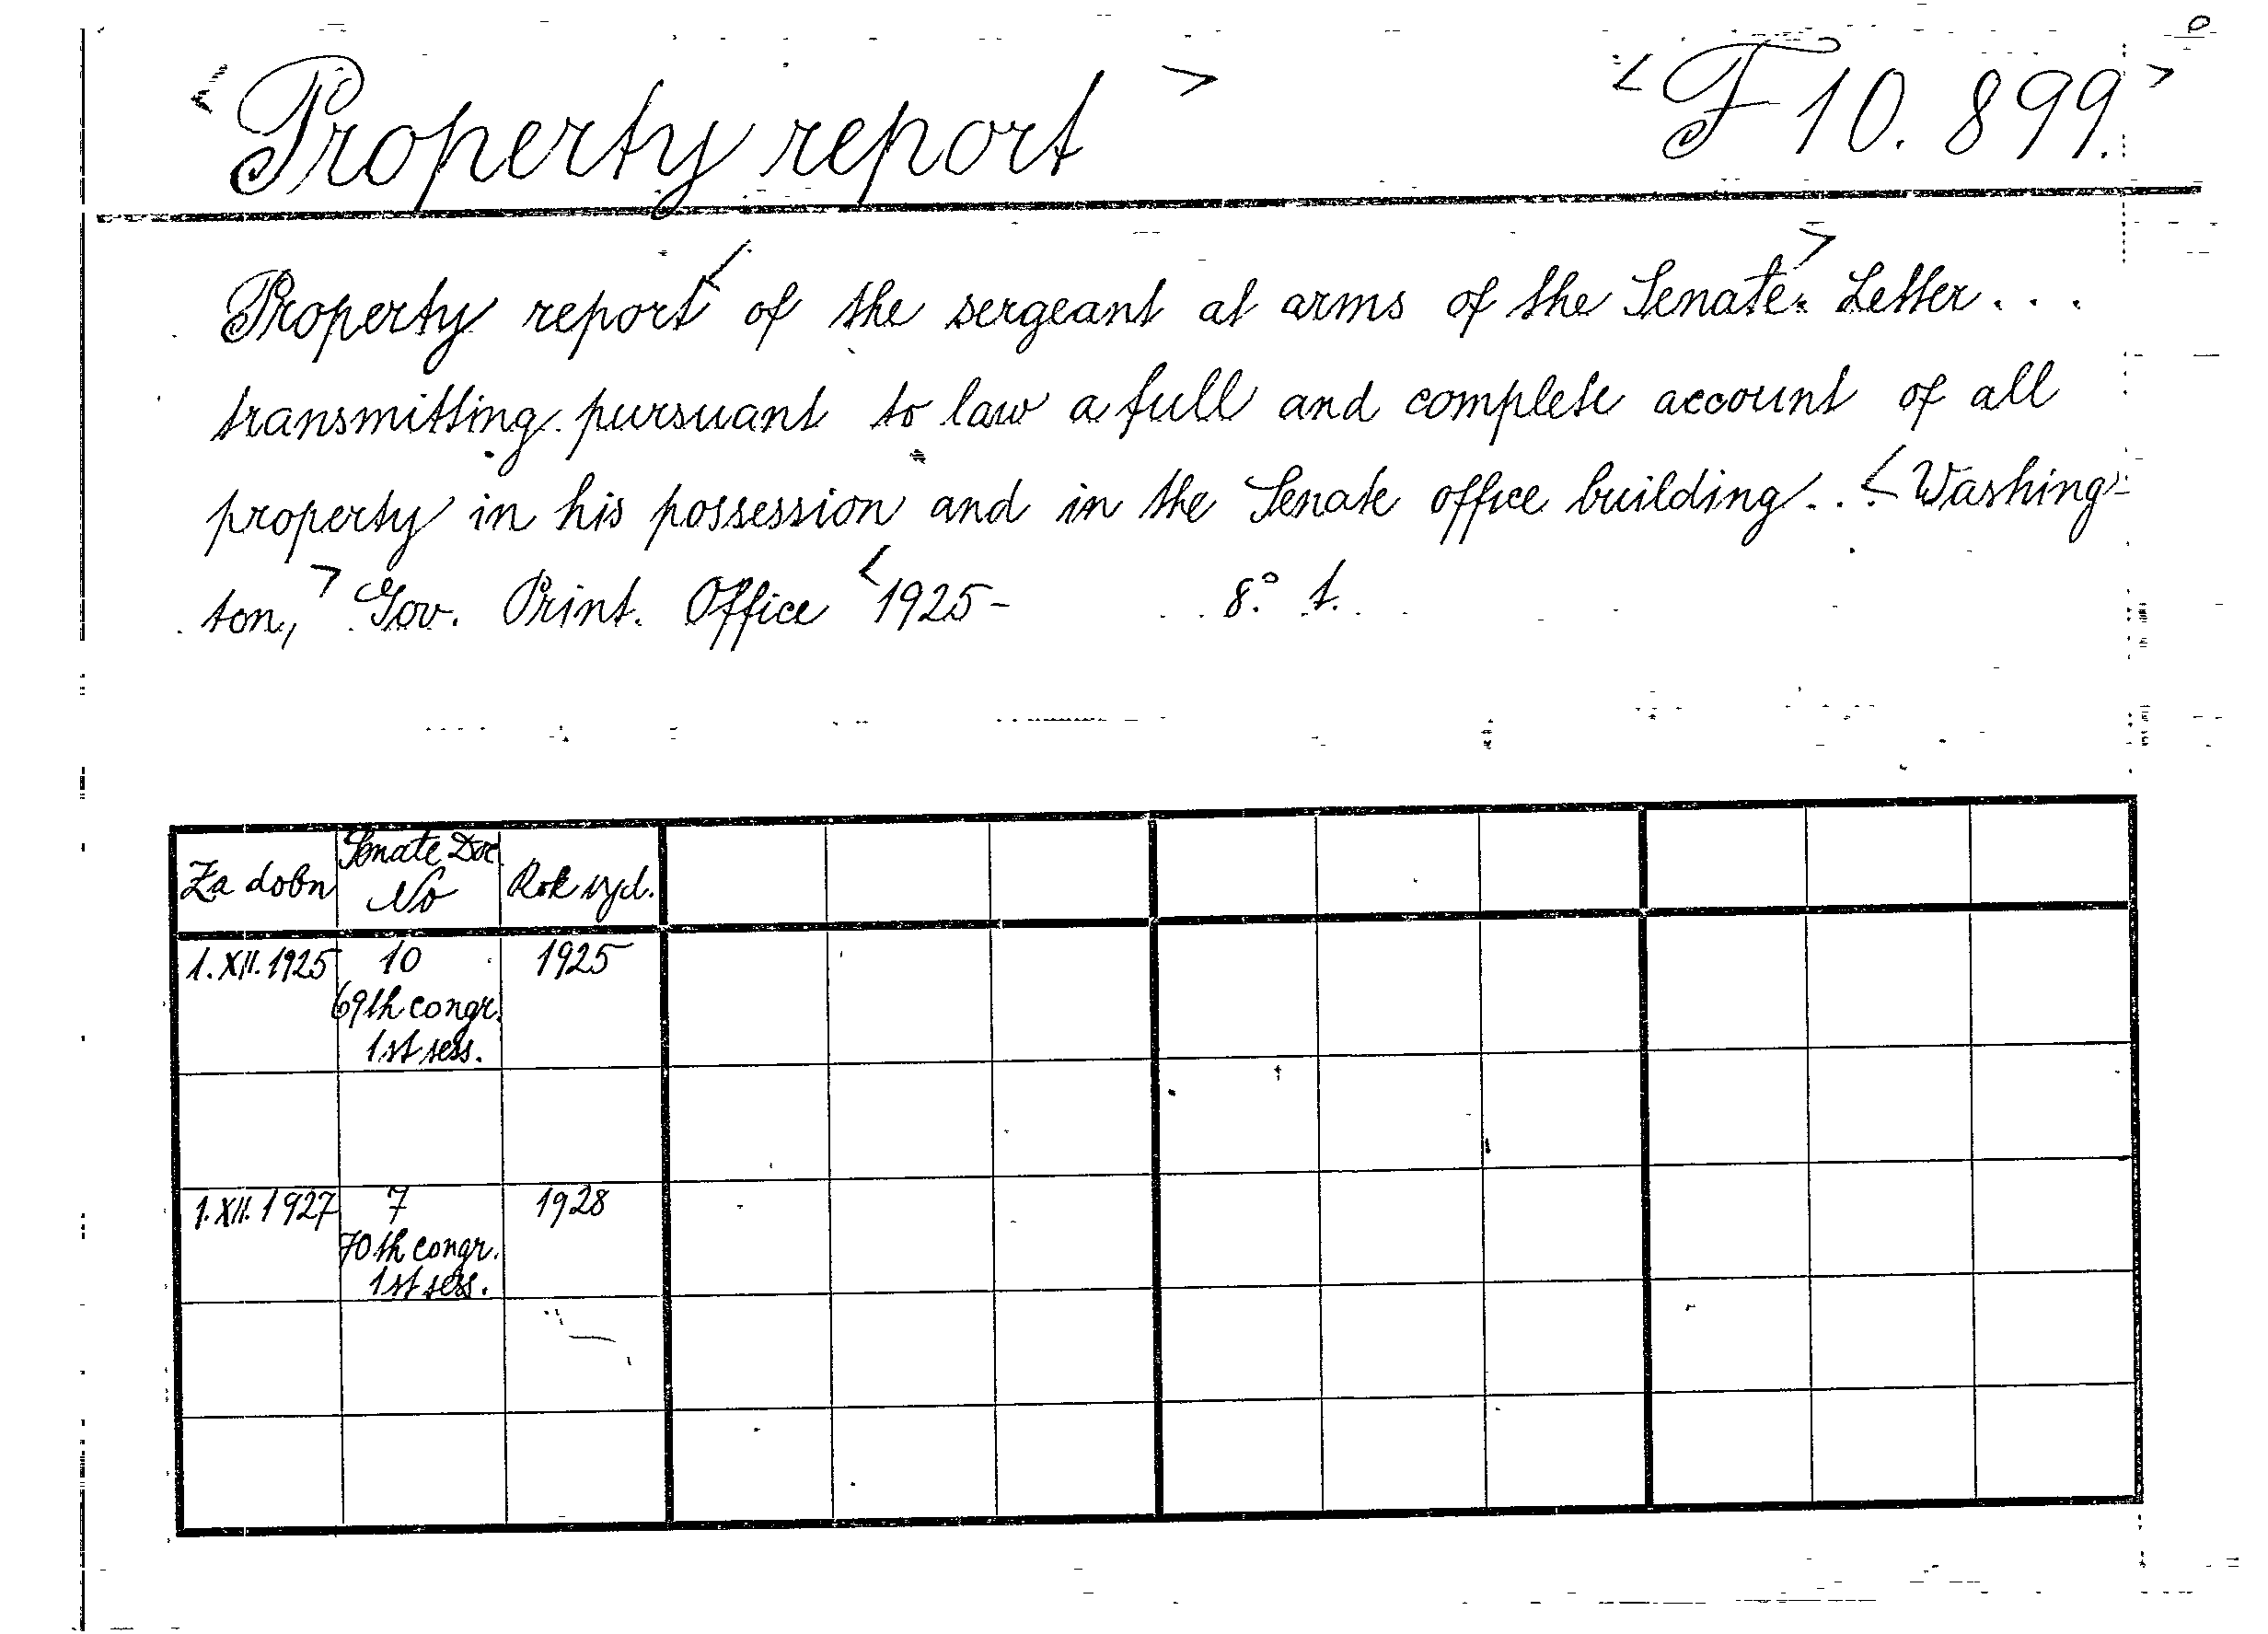 < Property report > < F 10.899. >
Property report < of the sergeant at arms of the Senate. > Letter...
transmitting pursuant to law a full and complete account of all
property in his possession and in the Senate office building... < Washing-
ton, > Gov. Print. Office < 1925- 8.° t.
Za dobu Senate Doc. No Rok vyd.
1.XII.1925 10 1925
69th congr.
1st sess.
1.XII.1927 7 1928
70th congr.
1st sess.